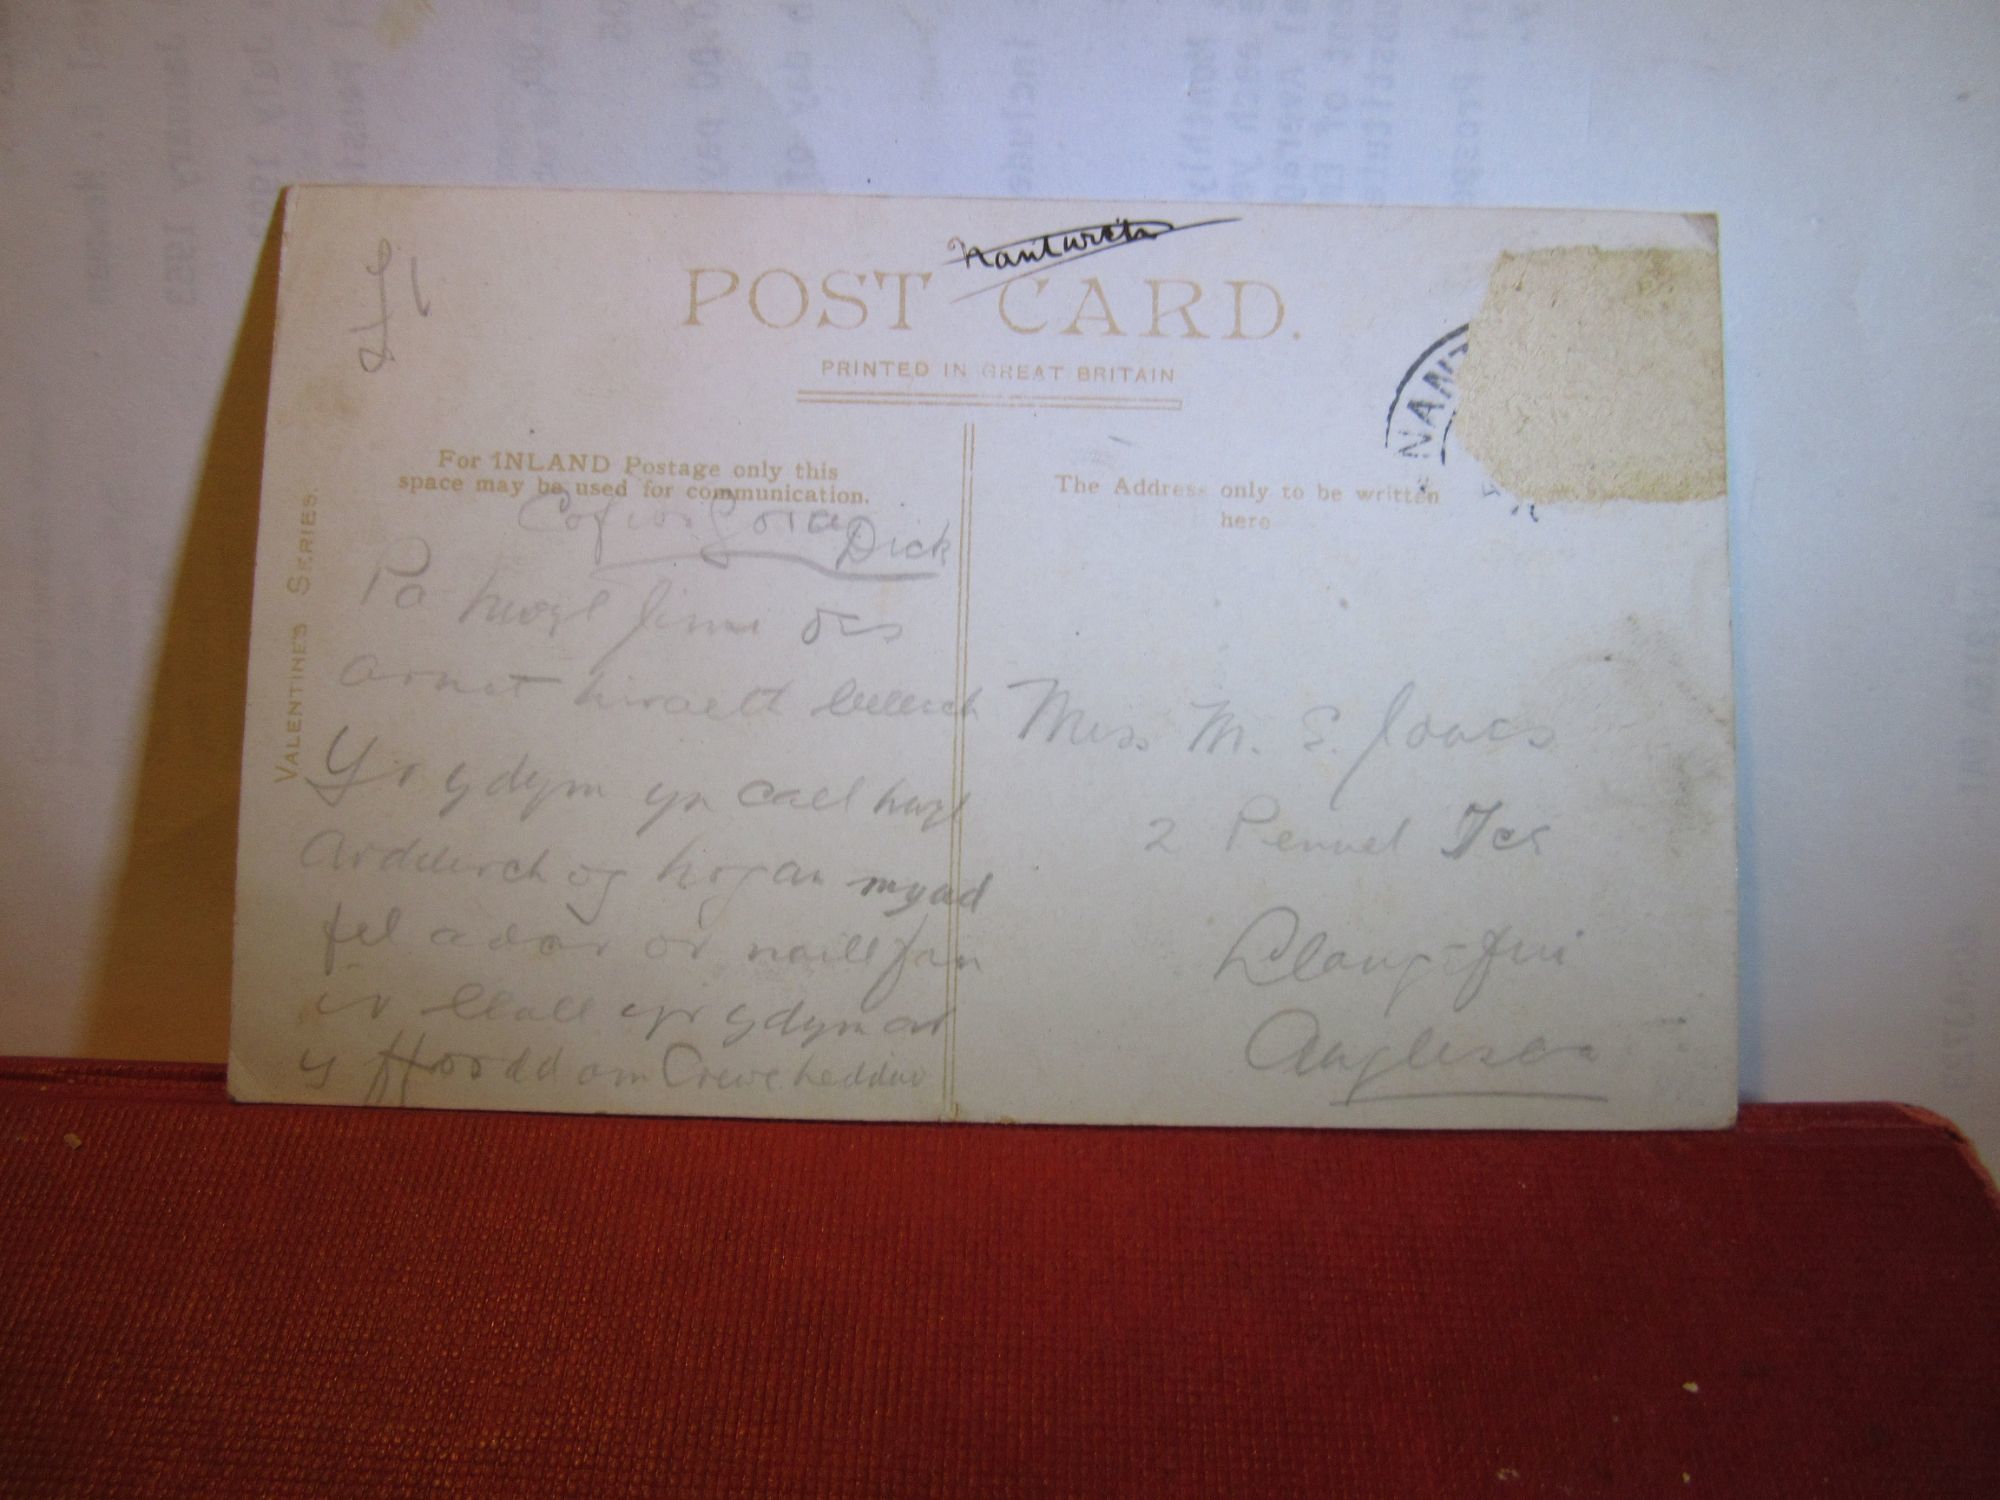 Nantwich
POST CARD.
PRINTED IN GREAT BRITAIN
NANT
VALENTINE'S SERIES.
For INLAND Postage only this
space may be used for communication.
The Address only to be written
here
£1
Cofion Dick
Pa hwyl oes
arnat hiraeth
Yr ydym yn cael hwyl
ardderchog hogan myad
fel adar or naill fan
ir llall yr ydym ar
y ffordd am Crewe heddiw
Miss M. E. Jones
2 Penuel Tce
Llangefni
Anglesea